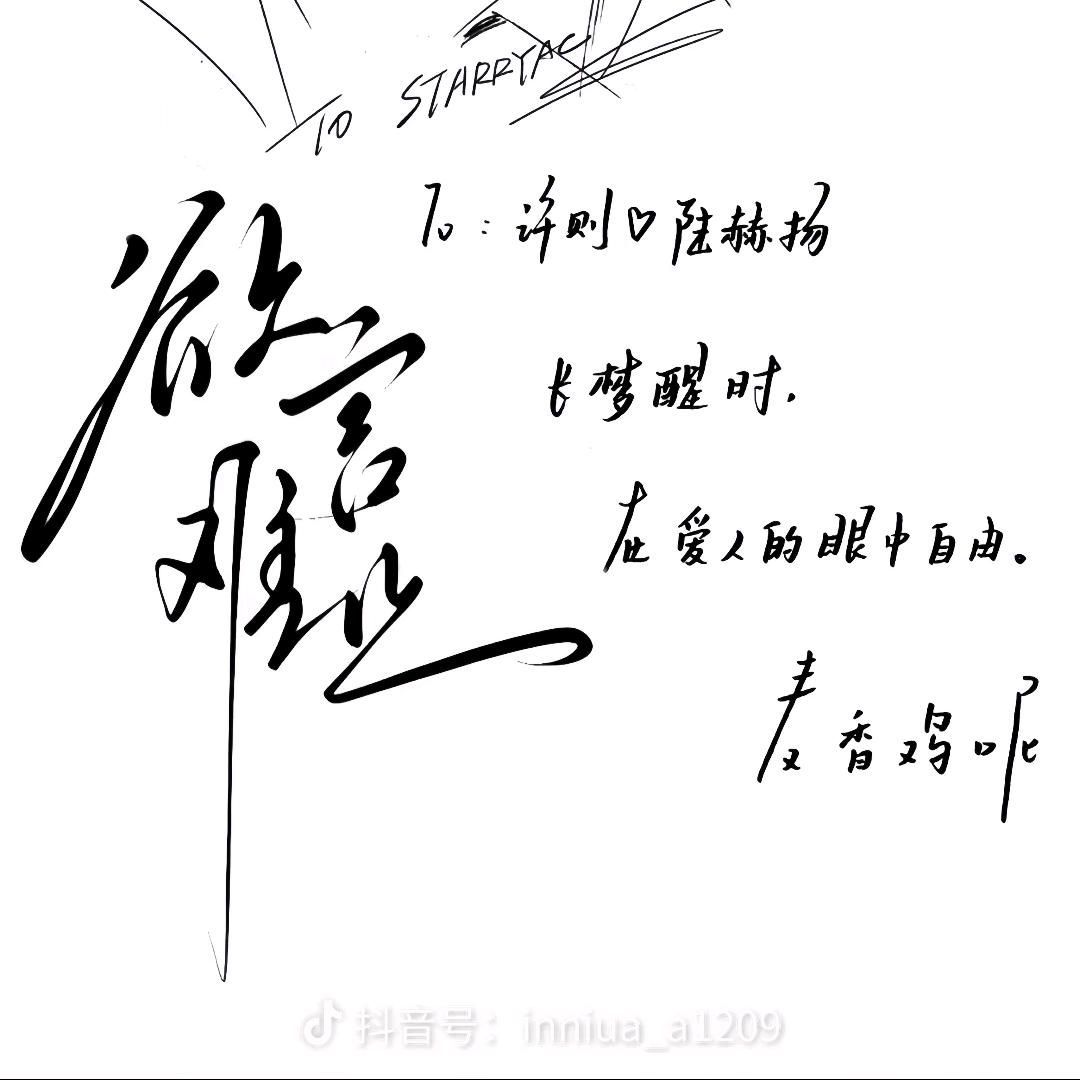 TO STARRYAC
欲言难止
To：许则♡陆赫扬
长梦醒时.
在爱人的眼中自由。
麦香鸡呢
抖音号：inniua_a1209